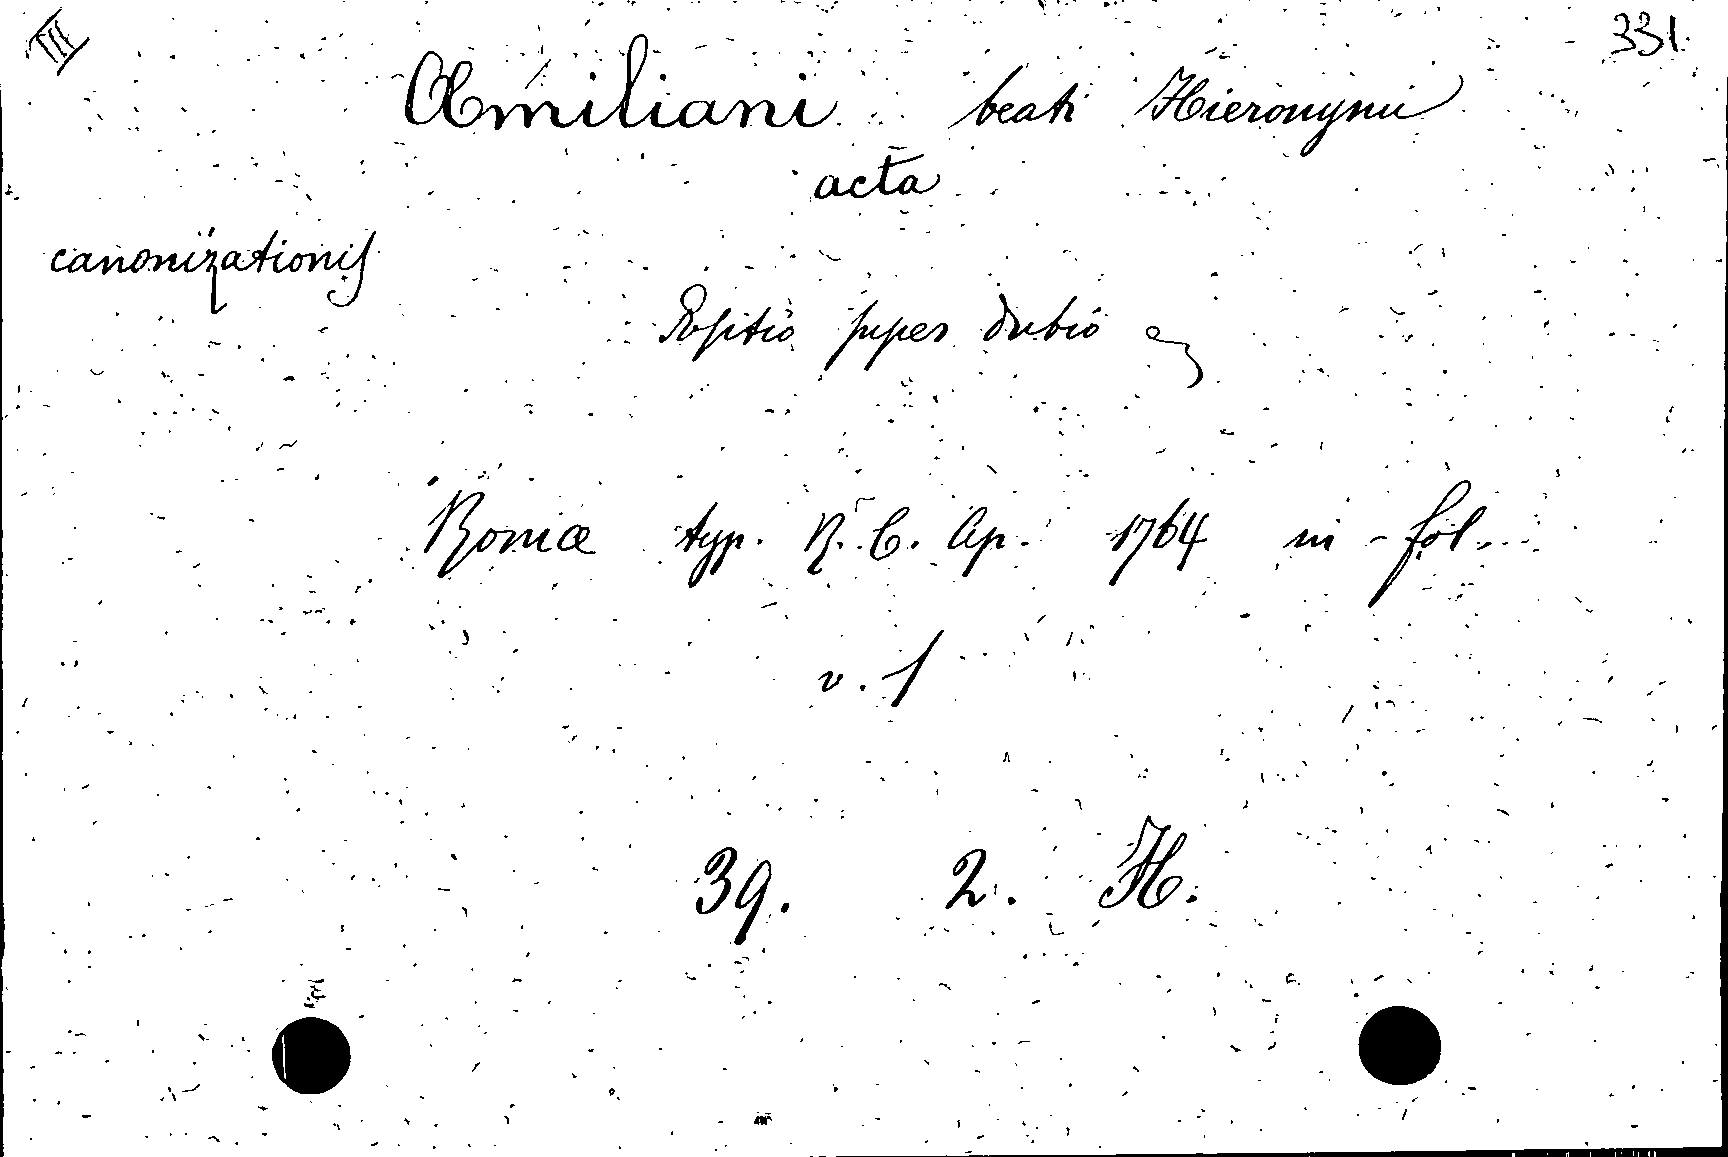 III 331.
Æmiliani beati Hieronymi
acta
canonizationis
Positio super dubio
Romæ typ. R. C. Ap. 1764 in-fol.
v. 1
39. 2. H.